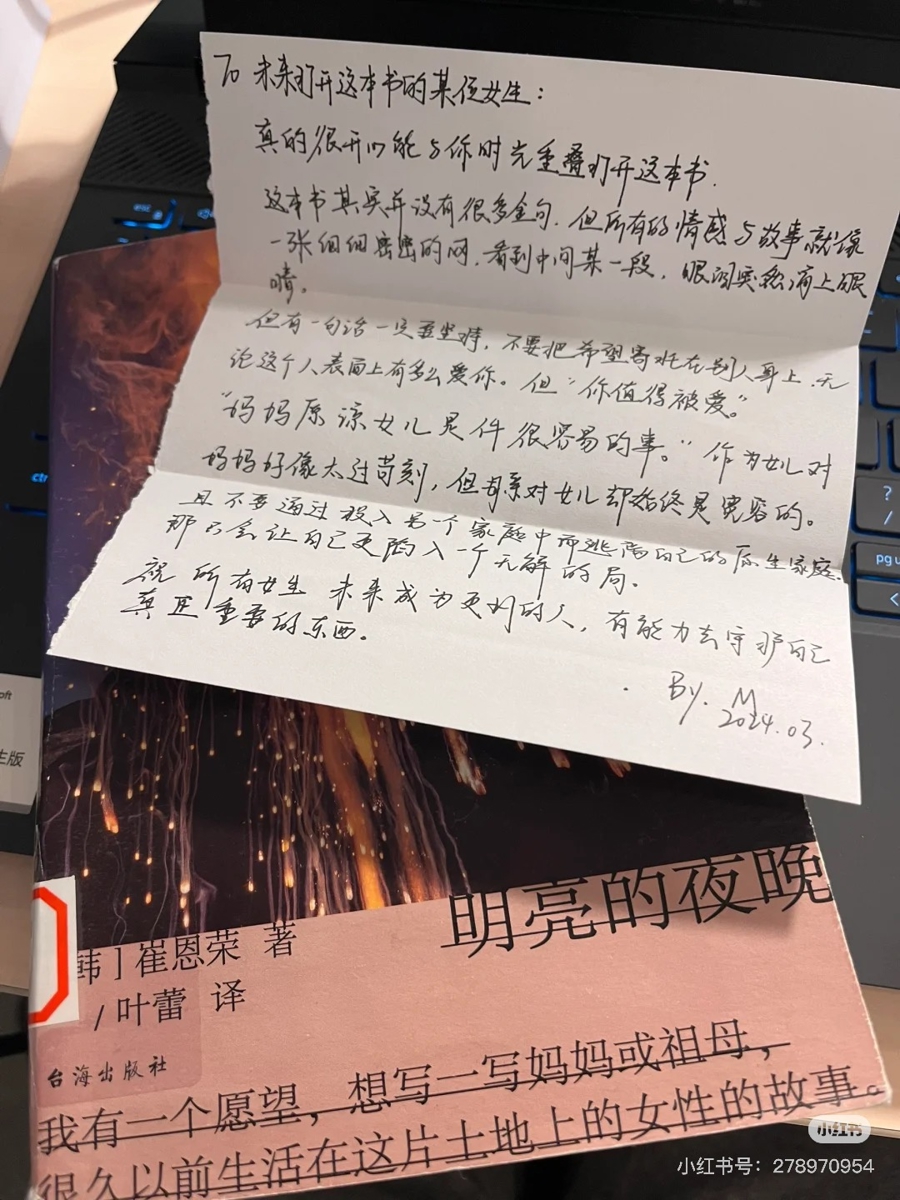 To 未来打开这本书的某位女生：
真的很开心能与你时光重叠打开这本书.
这本书其实并没有很多金句. 但所有的情感与故事就像
一张细细密密的网. 看到中间某一段, 眼泪突然涌上眼
睛。
但有一句话一定要坚持, 不要把希望寄托在别人身上. 无
论这个人表面上有多么爱你。但“你值得被爱。”
“妈妈原谅女儿是件很容易的事。”作为女儿对
妈妈好像太过苛刻, 但母亲对女儿却始终是宽容的。
且不要通过投入另一个家庭中而逃离自己的原生家庭.
那只会让自己更陷入一个无解的局.
祝所有女生 未来成为更好的人, 有能力去守护自己
真正重要的东西。
By. M
2024.03.
明亮的夜晚
韩］崔恩荣 著
/ 叶蕾 译
台海出版社
我有一个愿望，想写一写妈妈或祖母，
很久以前生活在这片土地上的女性的故事。
ctr
?
/
pgu
<
生版
小红书
小红书号：278970954